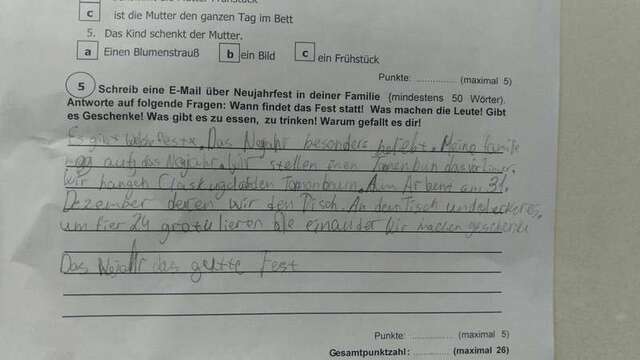 c ist die Mutter den ganzen Tag im Bett
5. Das Kind schenkt der Mutter.
a Einen Blumenstrauß b ein Bild c ein Frühstück
Punkte: ............... (maximal 5)
5 Schreib eine E-Mail über Neujahrfest in deiner Familie (mindestens 50 Wörter).
Antworte auf folgende Fragen: Wann findet das Fest statt! Was machen die Leute! Gibt
es Geschenke! Was gibt es zu essen, zu trinken! Warum gefällt es dir!
Es gibt. Das Nejahr besonders beliebt. Meine familie
auf das Nejahr. Wir stellen einen
Wir hangen Tannanbaun. Aum Arbent am 31.
Dezember wir den Tisch. An dem Tisch
um fier 24 gratulieren alle einauder Wir machen geschenke
Das Nejahr das gutte Fest
Punkte: ............... (maximal 5)
Gesamtpunktzahl: ............... (maximal 26)